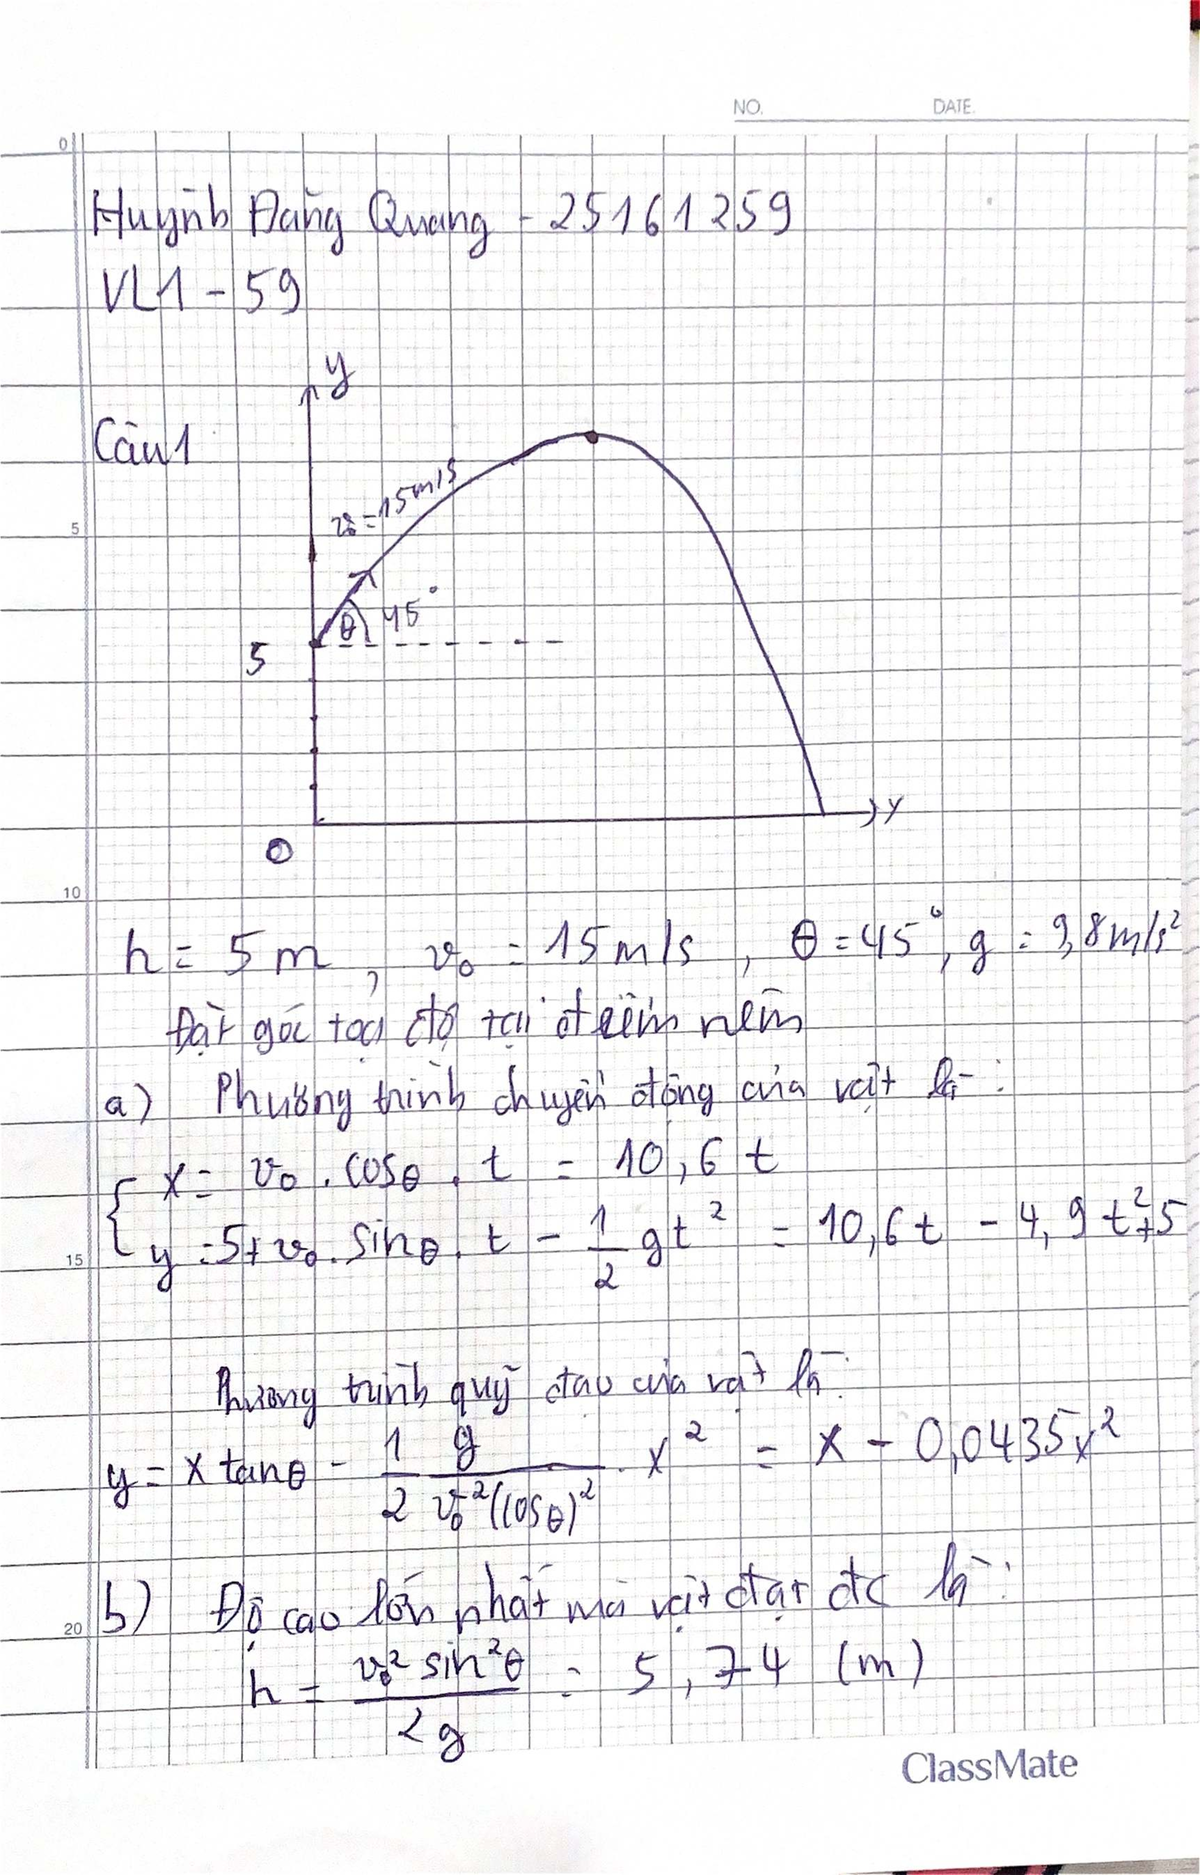 NO. DATE.
0
Huỳnh Đăng Quang - 25161259
VL1 - 59
y
Câu 1
v₀ = 15m/s
5
θ 45°
5
x
O
10
h = 5 m, v₀ = 15 m/s, θ = 45°, g = 9,8 m/s²
Đặt gốc toạ độ tại điểm ném
a) Phương trình chuyển động của vật là:
{ x = v₀ . cosθ . t = 10,6 t
y = 5 + v₀ . sinθ . t - 1/2 gt² = 10,6t - 4,9t² + 5
15
Phương trình quỹ đạo của vật là:
y = x tanθ - 1/2 g/(v₀²(cosθ)²) . x² = x - 0,0435x²
b) Độ cao lớn nhất mà vật đạt đc là:
20
h = v₀² sin²θ / 2g = 5,74 (m)
ClassMate